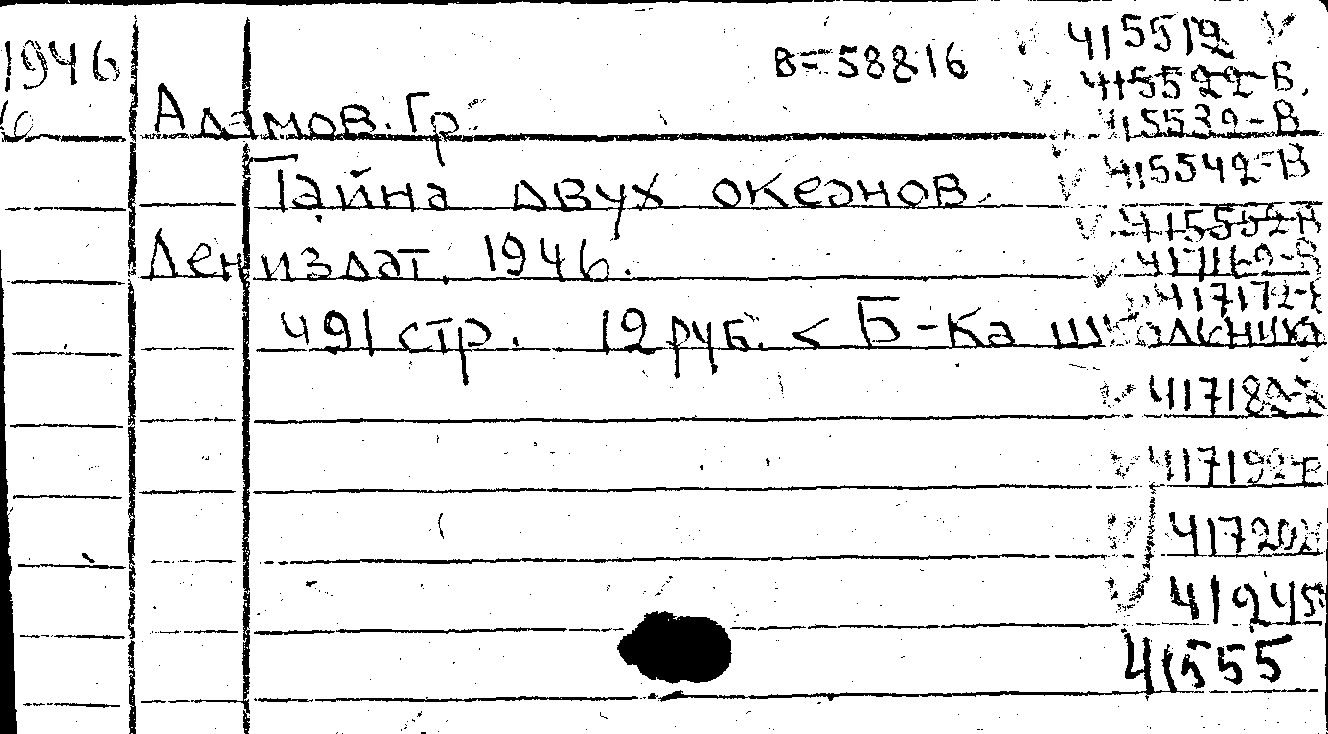 1946
6
В=58816
Адамов. Гр.
Тайна двух океанов.
Лениздат. 1946.
491 стр. 12 руб. < Б-ка школьника
415512
415522-Б.
415532-В
415542-В
415552-В
417162-В
417172-
417182-
417192-
417202
41245
41555